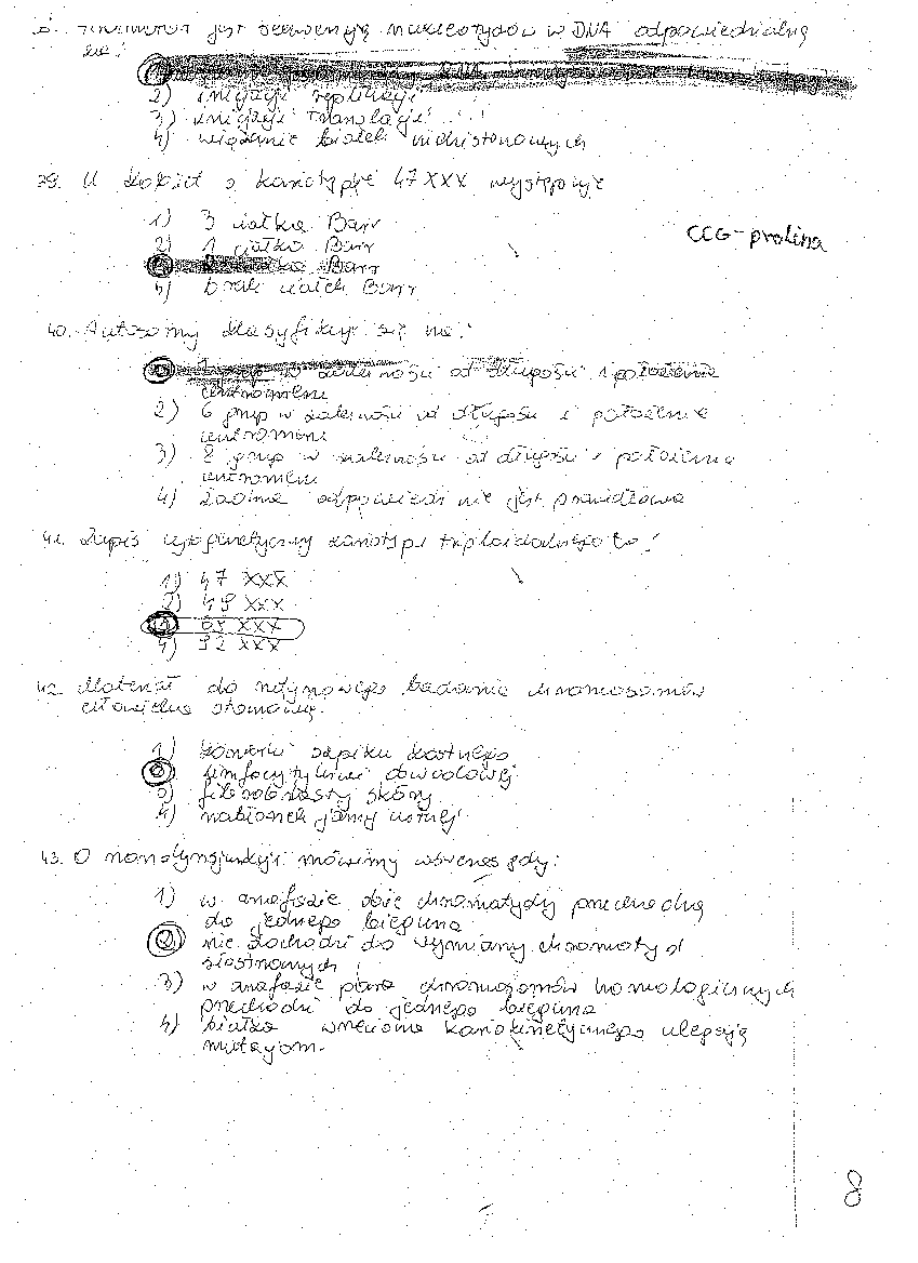 jest sekwencją nukleotydów w DNA odpowiedzialną
za:
2) inicjację replikacji
3) inicjację translacji
4) wiązanie białek niehistonowych
39. U kobiet z kariotypie 47 XXX występuje
1) 3 ciałka Barr
2) 1 ciałko Barr
ciałka Barr
4) brak ciałek Barr
CCG - prolina
40. Autosomy klasyfikuje się na:
w zależności od długości i położenia
centromeru
2) 6 grup w zależności od długości i położenie
centromeru
3) 8 grup w zależności od długości i położenia
centromeru
4) żadna odpowiedzi nie jest prawidłowa
41. Zapis cytogenetyczny kariotypu triploidalnego to:
1) 47 XXX
2) 49 XXX
3) 69 XXX
4) 92 XXX
42. Materiał do rutynowego badania chromosomów
człowieka stanowią.
1) komórki szpiku kostnego
2) limfocyty krwi obwodowej
3) fibroblasty skóry
4) nabłonek jamy ustnej
43. O nondysjunkcji mówimy wówczas gdy:
1) w anafazie obie chromatydy przechodzą
do jednego bieguna
2) nie dochodzi do wymiany chromatyd
siostrzanych
3) w anafazie para chromosomów homologicznych
przechodzi do jednego bieguna
4) białka wrzeciona kariokinetycznego ulegają
mutacjom.
8